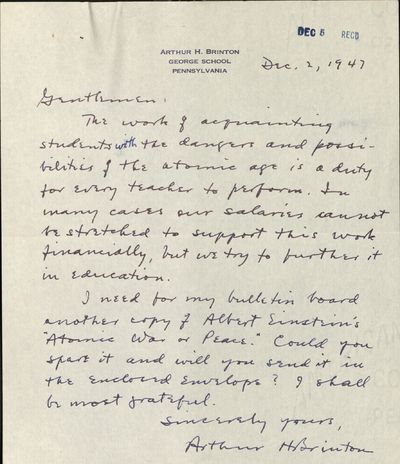 DEC 5 RECD
ARTHUR H. BRINTON
GEORGE SCHOOL
PENNSYLVANIA
Dec. 2, 1947
Gentlemen:
The work of acquainting
students with the dangers and possi-
bilities of the atomic age is a duty
for every teacher to perform. In
many cases our salaries cannot
be stretched to support this work
financially, but we try to further it
in education.
I need for my bulletin board
another copy of Albert Einstein's
"Atomic War or Peace." Could you
spare it and will you send it in
the enclosed envelope? I shall
be most grateful.
Sincerely yours,
Arthur H Brinton